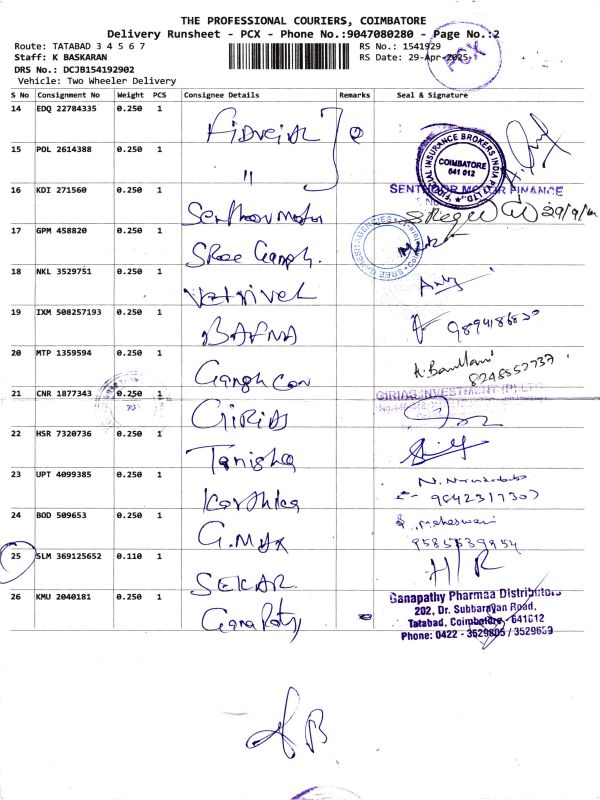 THE PROFESSIONAL COURIERS, COIMBATORE
Delivery Runsheet - PCX - Phone No.:9047080280 - Page No.:2
Route: TATABAD 3 4 5 6 7
RS No.: 1541929
Staff: K BASKARAN
RS Date: 29-Apr-2025
PCX
DRS No.: DCJB154192902
Vehicle: Two Wheeler Delivery
S No Consignment No Weight PCS Consignee Details Remarks Seal & Signature
14 EDQ 22784335 0.250 1
INSURANCE BROKERS INDIA PVT. LTD.
COIMBATORE
641 012
15 POL 2614388 0.250 1 "
16 KDI 271560 0.250 1 Senthoor motor
SENTHOOR MOTOR FINANCE
17 GPM 458820 0.250 1 Sree Ganesh.
SREE GANESH AGENCIES
18 NKL 3529751 0.250 1 Vetrivel
19 IXM 508257193 0.250 1 BAFNA
9894186830
20 MTP 1359594 0.250 1
8248552737
21 CNR 1877343 0.250 1 GIRIAS
GIRIAS INVESTMENT (P) LTD
22 HSR 7320736 0.250 1 Tanishq
23 UPT 4099385 0.250 1 Karthika
9842317307
24 BOD 509653 0.250 1
Maheswari
9585539954
25 SLM 369125652 0.110 1 SEKAR
26 KMU 2040181 0.250 1 Ganapathy
Ganapathy Pharmaa Distributors
202, Dr. Subbarayan Road,
Tatabad, Coimbatore - 641012
Phone: 0422 - 3529805 / 3529659